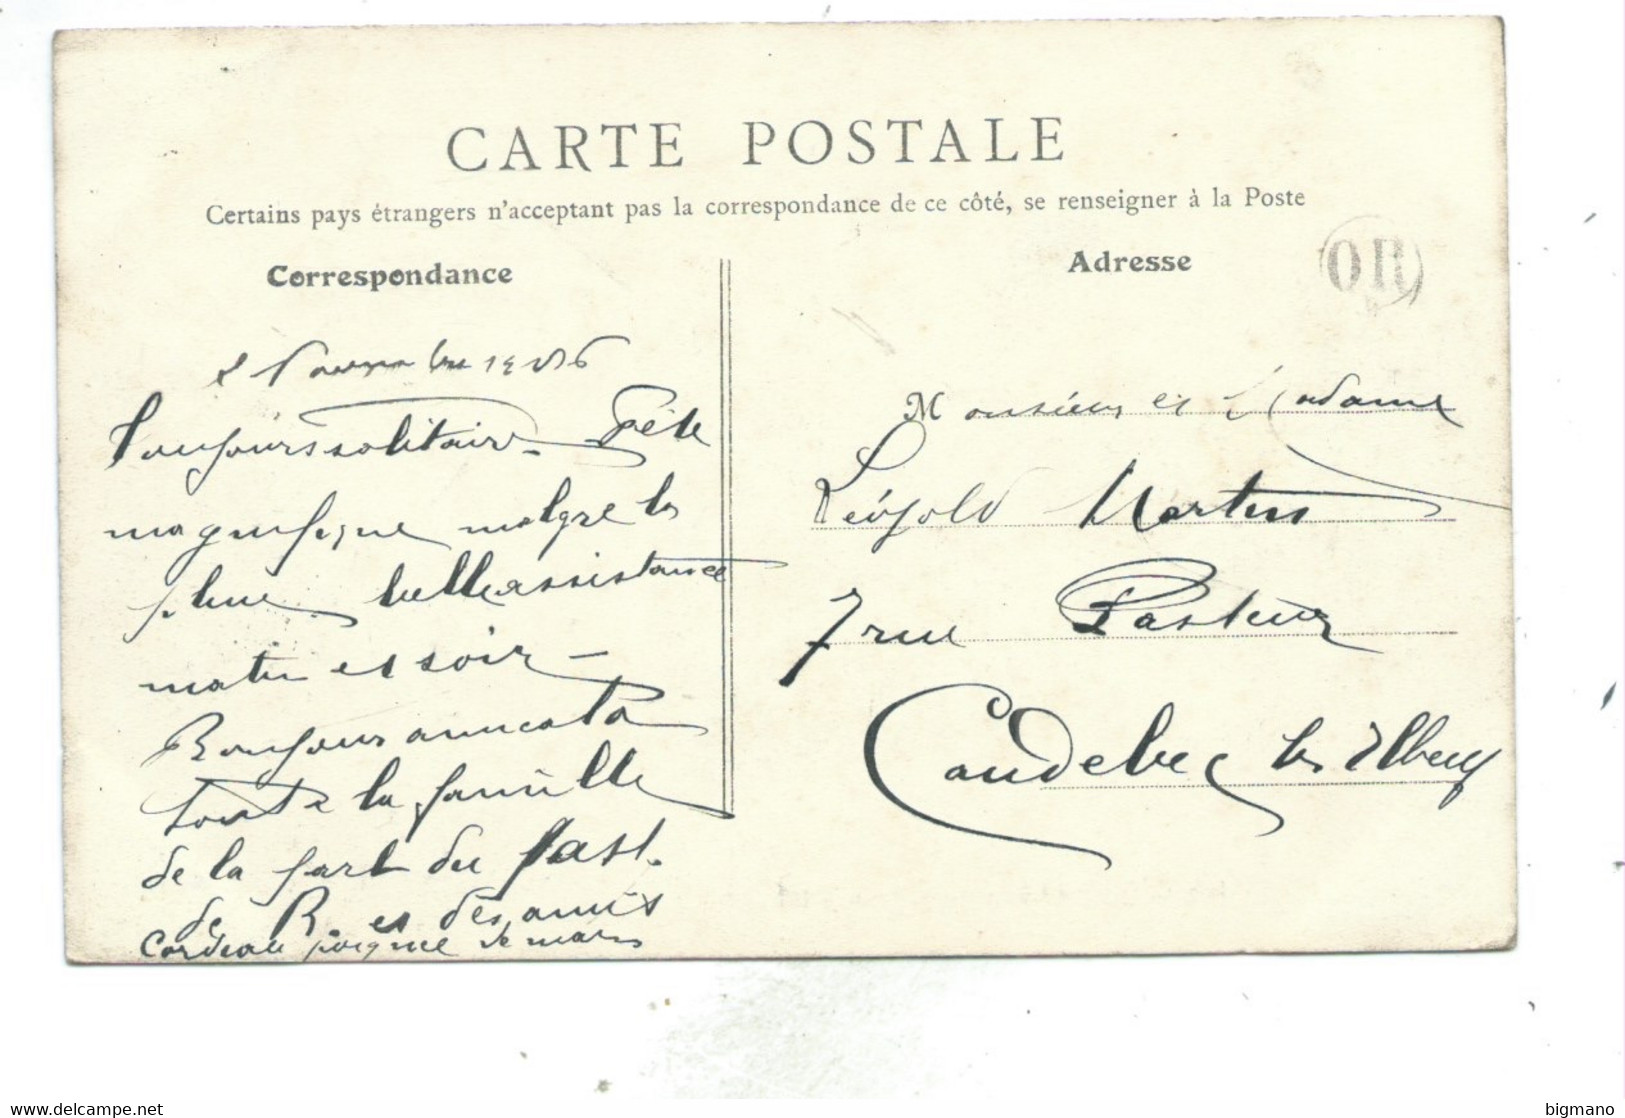 CARTE POSTALE
Certains pays étrangers n'acceptant pas la correspondance de ce côté, se renseigner à la Poste
Correspondance
Adresse
OR
Novembre 1906
Toujours solitaire - Fête
magnifique malgré la
pluie belle assistance
matin et soir -
Bonjour amical à
toute la famille
de la part du past.
de R. et des amis
Cordiale poignée de main
Monsieur et Madame
Léopold Martin
7 rue Pasteur
Caudebec les Elbeuf
bigmano